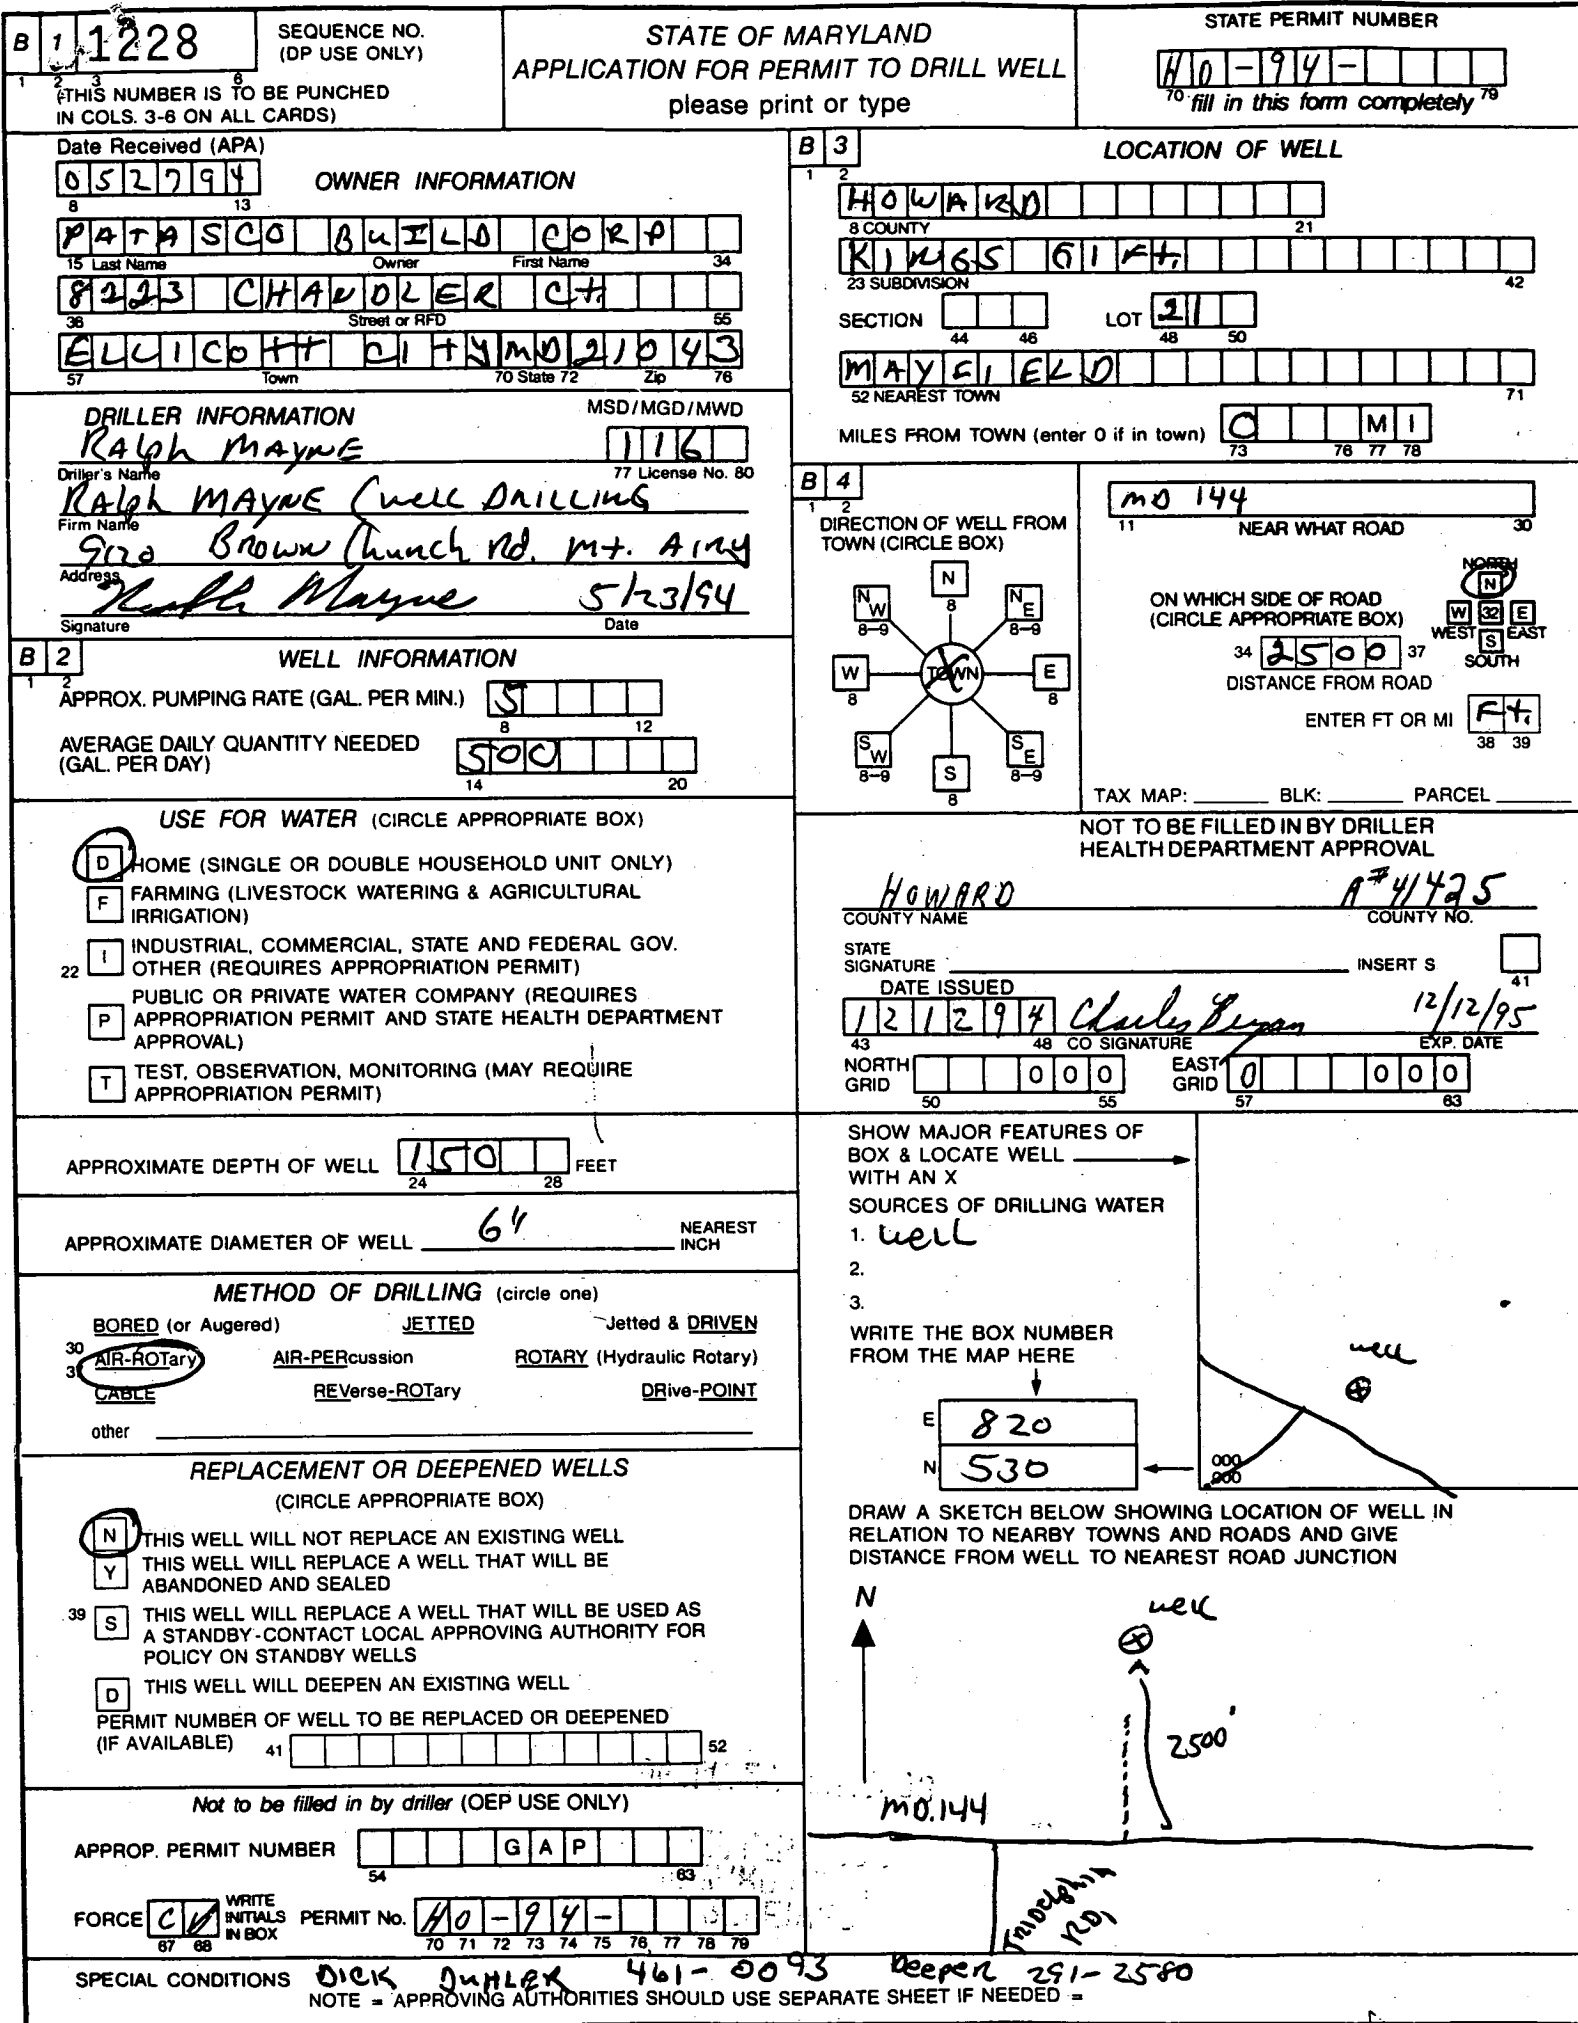 B 1 1228 SEQUENCE NO. (DP USE ONLY)
1 2 3 6
(THIS NUMBER IS TO BE PUNCHED
IN COLS. 3-6 ON ALL CARDS)
STATE OF MARYLAND
APPLICATION FOR PERMIT TO DRILL WELL
please print or type
STATE PERMIT NUMBER
HO-94-
70 fill in this form completely 79
Date Received (APA)
052794
8 13
OWNER INFORMATION
PATASCO BUILD CORP
15 Last Name Owner First Name 34
8223 CHANDLER Ct
36 Street or RFD 55
ELLICOtt CItY MD 21043
57 Town 70 State 72 Zip 76
DRILLER INFORMATION MSD/MGD/MWD
RALph MAYNE 116
Driller's Name 77 License No. 80
RALph MAYNE (well DRILLING
Firm Name
9120 Brown Church Rd. Mt. AIRY
Address
Ralph Mayne 5/23/94
Signature Date
B 2 WELL INFORMATION
1 2
APPROX. PUMPING RATE (GAL. PER MIN.) 5
8 12
AVERAGE DAILY QUANTITY NEEDED
(GAL. PER DAY) 500
14 20
USE FOR WATER (CIRCLE APPROPRIATE BOX)
D HOME (SINGLE OR DOUBLE HOUSEHOLD UNIT ONLY)
F FARMING (LIVESTOCK WATERING & AGRICULTURAL
IRRIGATION)
22 I INDUSTRIAL, COMMERCIAL, STATE AND FEDERAL GOV.
OTHER (REQUIRES APPROPRIATION PERMIT)
P PUBLIC OR PRIVATE WATER COMPANY (REQUIRES
APPROPRIATION PERMIT AND STATE HEALTH DEPARTMENT
APPROVAL)
T TEST, OBSERVATION, MONITORING (MAY REQUIRE
APPROPRIATION PERMIT)
APPROXIMATE DEPTH OF WELL 150 FEET
24 28
APPROXIMATE DIAMETER OF WELL 6" NEAREST
INCH
METHOD OF DRILLING (circle one)
BORED (or Augered) JETTED Jetted & DRIVEN
30 AIR-ROTary AIR-PERcussion ROTARY (Hydraulic Rotary)
37 CABLE REVerse-ROTary DRive-POINT
other
REPLACEMENT OR DEEPENED WELLS
(CIRCLE APPROPRIATE BOX)
N THIS WELL WILL NOT REPLACE AN EXISTING WELL
Y THIS WELL WILL REPLACE A WELL THAT WILL BE
ABANDONED AND SEALED
39 S THIS WELL WILL REPLACE A WELL THAT WILL BE USED AS
A STANDBY-CONTACT LOCAL APPROVING AUTHORITY FOR
POLICY ON STANDBY WELLS
D THIS WELL WILL DEEPEN AN EXISTING WELL
PERMIT NUMBER OF WELL TO BE REPLACED OR DEEPENED
(IF AVAILABLE) 41 52
Not to be filled in by driller (OEP USE ONLY)
APPROP. PERMIT NUMBER GAP
54 63
FORCE WRITE INITIALS IN BOX PERMIT No. HO-94-
67 68 70 71 72 73 74 75 76 77 78 79
B 3 LOCATION OF WELL
1 2
HOWARD
8 COUNTY 21
KINGS GIFt
23 SUBDIVISION 42
SECTION LOT 21
44 46 48 50
MAYFIELD
52 NEAREST TOWN 71
MILES FROM TOWN (enter 0 if in town) 0 MI
73 76 77 78
B 4
1 2
DIRECTION OF WELL FROM
TOWN (CIRCLE BOX)
N
8
NW NE
8-9 8-9
W TOWN E
8 8
SW SE
8-9 8-9
S
8
MD 144
11 NEAR WHAT ROAD 30
ON WHICH SIDE OF ROAD
(CIRCLE APPROPRIATE BOX)
NORTH
N
W 32 E
WEST S EAST
SOUTH
34 2500 37
DISTANCE FROM ROAD
ENTER FT OR MI Ft.
38 39
TAX MAP: BLK: PARCEL
NOT TO BE FILLED IN BY DRILLER
HEALTH DEPARTMENT APPROVAL
HOWARD A#41425
COUNTY NAME COUNTY NO.
STATE
SIGNATURE INSERT S
41
DATE ISSUED
121294 12/12/95
43 48 CO SIGNATURE EXP. DATE
NORTH GRID 000 EAST GRID 0 000
50 55 57 63
SHOW MAJOR FEATURES OF
BOX & LOCATE WELL
WITH AN X
SOURCES OF DRILLING WATER
1. well
2.
3.
WRITE THE BOX NUMBER
FROM THE MAP HERE
E 820
N 530
well
000
000
DRAW A SKETCH BELOW SHOWING LOCATION OF WELL IN
RELATION TO NEARBY TOWNS AND ROADS AND GIVE
DISTANCE FROM WELL TO NEAREST ROAD JUNCTION
N
well
2500'
MD.144
Triadelphia
RD.
SPECIAL CONDITIONS DICK 461-0093 Deeper 291-2580
NOTE = APPROVING AUTHORITIES SHOULD USE SEPARATE SHEET IF NEEDED =